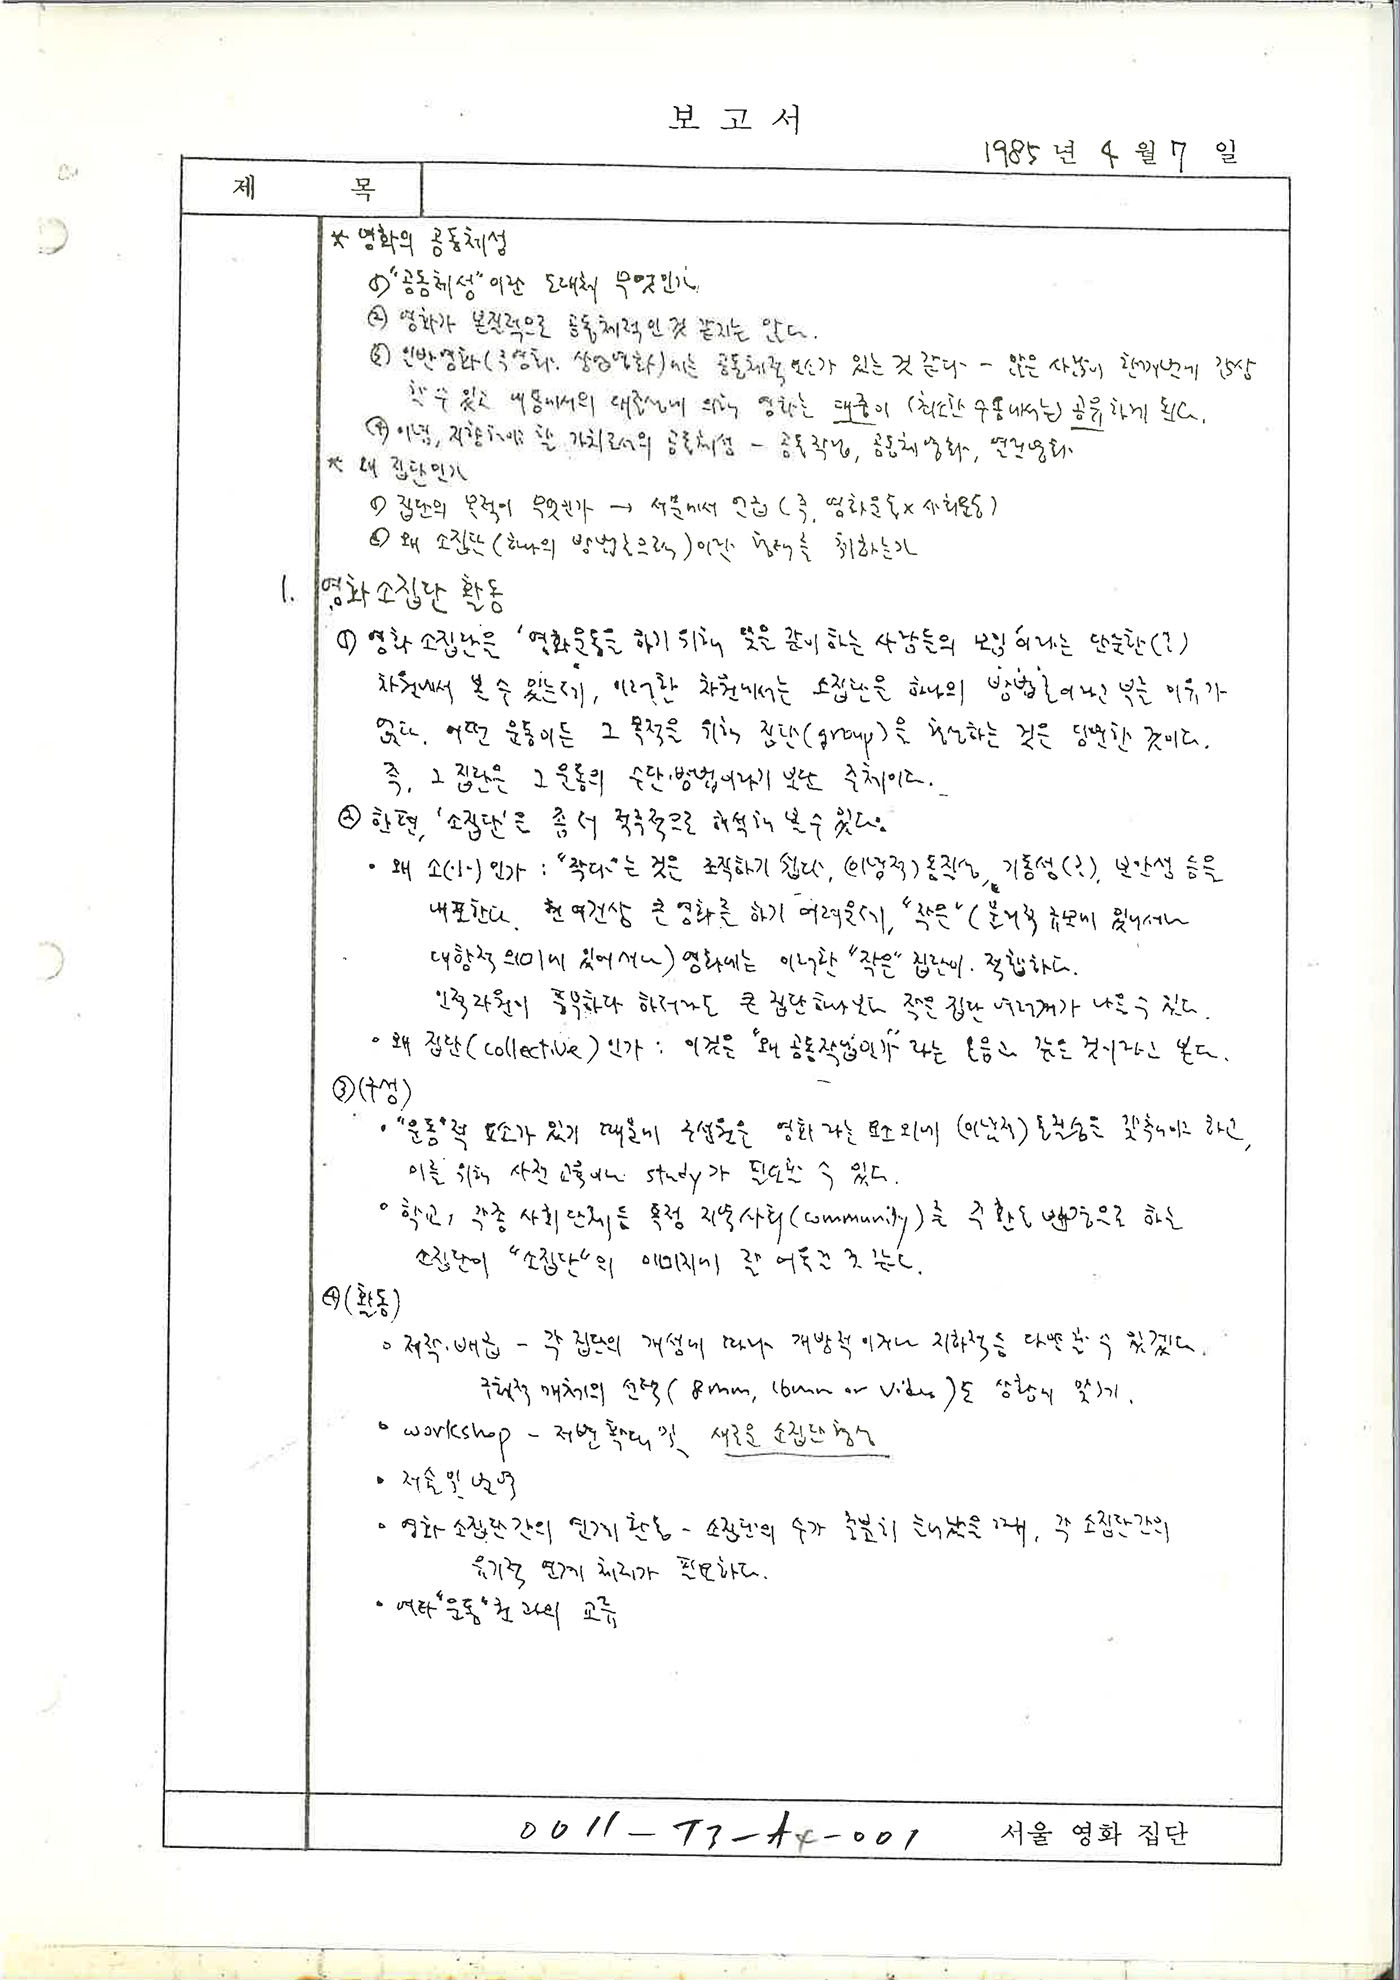 보 고 서
1985 년 4 월 7 일
제 목
* 영화의 공동체성
① "공동체성"이란 도대체 무엇인가
② 영화가 본질적으로 공동체적인 것 같지는 않다.
③ 일반영화(극영화. 상업영화)에는 공동체적 요소가 있는 것 같다 - 많은 사람이 한꺼번에 감상
할 수 있고 내용에서의 대중성에 의해 영화는 대중이 (최소한 수용에서는) 공유하게 된다.
④ 이념, 지향해야 할 가치로서의 공동체성 - 공동작업, 공동체영화,
* 왜 집단인가
① 집단의 목적이 무엇인가 → 서문에서 언급 (즉, 영화운동 x 사회운동)
② 왜 소집단(하나의 방법론으로써)이란 형태를 취하는가
1. 영화 소집단 활동
① 영화 소집단을 '영화운동을 하기 위해 뜻을 같이 하는 사람들의 모임'이라는 단순한(?)
차원에서 볼 수 있는데, 이러한 차원에서는 소집단을 하나의 방법론이라고 부를 이유가
없다. 어떤 운동이든 그 목적을 위해 집단(group)을 형성하는 것은 당연한 것이다.
즉, 그 집단은 그 운동의 수단·방법이라기 보단 주체이다.
② 한편, '소집단'은 좀 더 적극적으로 해석해 볼 수 있다.
• 왜 소(小)인가 : "작다"는 것은 조직하기 쉽다, (이념적) 동질성, 기동성(?), 보안성 등을
내포한다. 현 여건상 큰 영화를 하기 어려운데, "작은" (물리적 규모에 있어서나
대항적 의미에 있어서나) 영화에는 이러한 "작은" 집단이 적합하다.
인적자원이 풍부하다 하더라도 큰 집단 하나보다 작은 집단 여러개가 나을 수 있다.
• 왜 집단(collective)인가 : 이것은 "왜 공동작업인가" 라는 물음과 같은 것이라고 본다.
③ (구성)
• "운동"적 요소가 있기 때문에 구성원은 영화라는 요소 외에 (이념적) 동질성을 갖추어야 하고,
이를 위해 사전 교육이나 study가 필요할 수 있다.
• 학교, 각종 사회단체등 특정 지역사회(community)를 주 활동 배경으로 하는
소집단이 "소집단"의 이미지에 잘 어울릴 것 같다.
④ (활동)
• 제작·배급 - 각 집단의 개성에 따라 개방적이거나 지하적등 다변할 수 있겠다.
구체적 매체의 선택(8mm, 16mm or Video)도 상황에 맞게.
• workshop - 저변확대 및 새로운 소집단 형성
• 저술 및 번역
• 영화 소집단간의 연계 활동 - 소집단의 수가 충분히 늘어났을 때, 각 소집단간의
유기적 연계 체제가 필요하다.
• 여타 "운동"권과의 교류
0011-T3-A4-001
서울 영화 집단